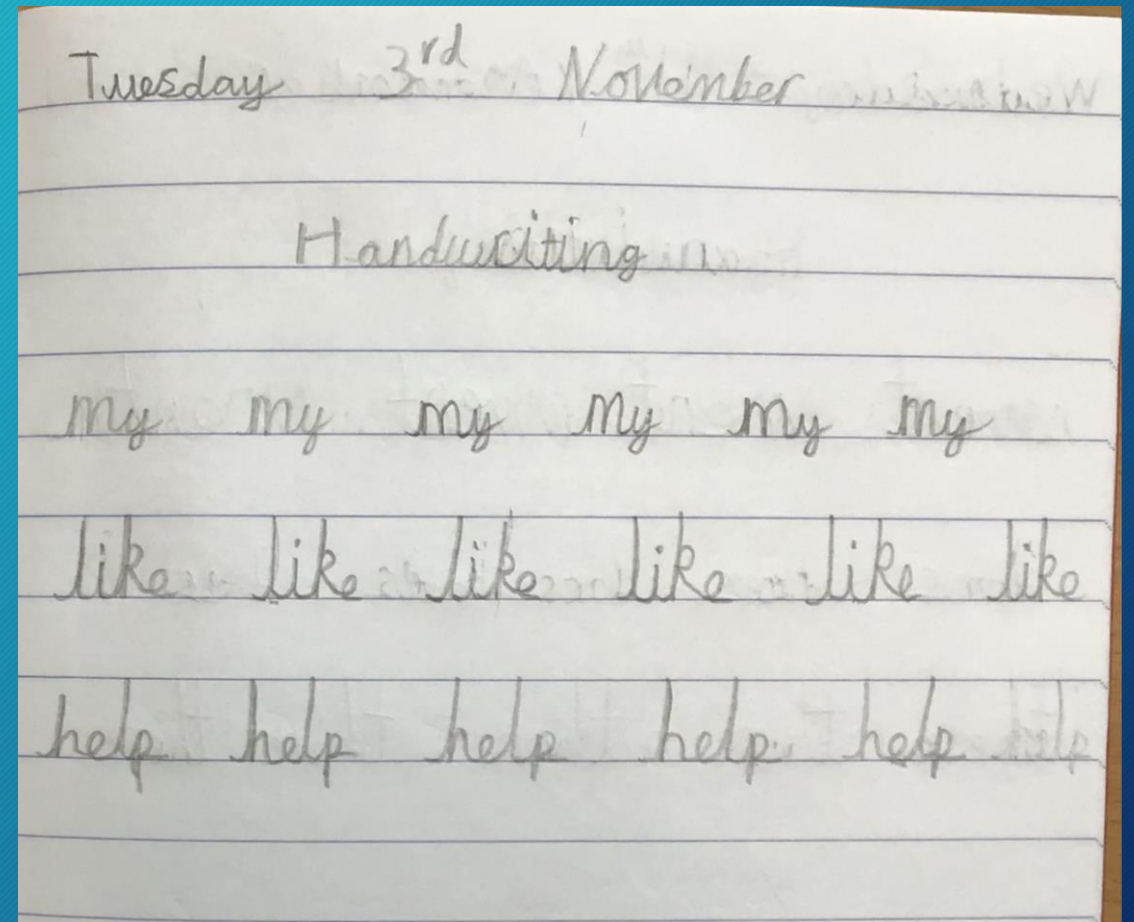 Tuesday 3rd November
Handwriting
my my my my my my
like like like like like like
help help help help help help